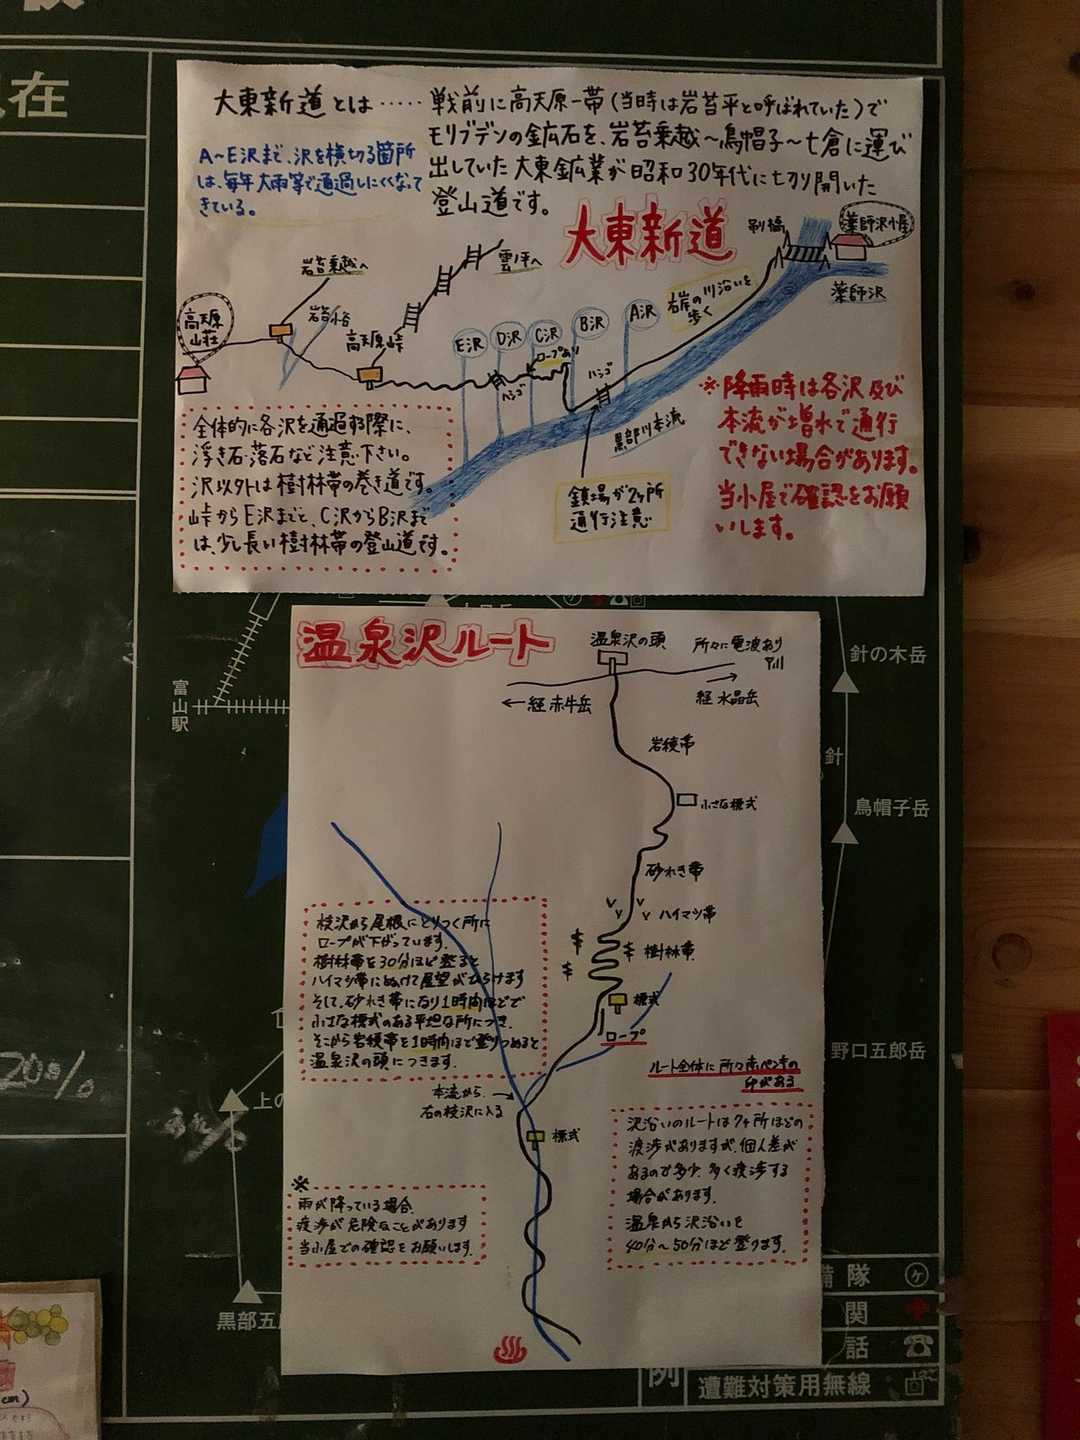 在
大東新道とは・・・・・
戦前に高天原一帯(当時は岩苔平と呼ばれていた)で
モリブデンの鉱石を、岩苔乗越〜烏帽子〜七倉に運び
出していた大東鉱業が昭和30年代に切り開いた
登山道です。
A〜E沢まで、沢を横切る箇所
は、毎年大雨等で通過しにくくなって
きている。
大東新道
吊橋
薬師沢小屋
薬師沢
岩苔乗越へ
雲ノ平へ
高天原
山荘
岩苔小谷
高天原峠
E沢
D沢
C沢
B沢
A沢
ロープあり
ハシゴ
ハシゴ
右岸の川沿いを
歩く
黒部川本流
鎖場が2ヶ所
通行注意
全体的に各沢を通過する際に、
浮き石・落石など注意下さい。
沢以外は樹林帯の巻き道です。
峠からE沢までと、C沢からB沢まで
は、少し長い樹林帯の登山道です。
※降雨時は各沢及び
本流が増水で通行
できない場合があります。
当小屋で確認をお願
いします。
温泉沢ルート
温泉沢の頭
所々に電波あり
←経赤牛岳
経水晶岳
岩稜帯
小さな標式
砂れき帯
ハイマツ帯
樹林帯
標式
ロープ
枝沢から尾根にとりつく所に
ロープが下がっています。
樹林帯を30分ほど登ると
ハイマツ帯にぬけて展望がひらけます
そして、砂れき帯になり1時間ほどで
小さな標式のある平坦な所につき、
そこから岩稜帯を1時間ほど登りつめると
温泉沢の頭につきます。
ルート全体に所々赤ペンキの
印がある
本流から
右の枝沢に入る
標式
沢沿いのルートは7ヶ所ほどの
渡渉がありますが、個人差が
あるので多少、多く渡渉する
場合があります。
温泉から沢沿いを
40分〜50分ほど登ります。
※
雨が降っている場合、
渡渉が危険なことがあります
当小屋での確認をお願いします。
富山駅
針の木岳
針
烏帽子岳
野口五郎岳
上の
20%
黒部五
備隊
関
話
例
遭難対策用無線